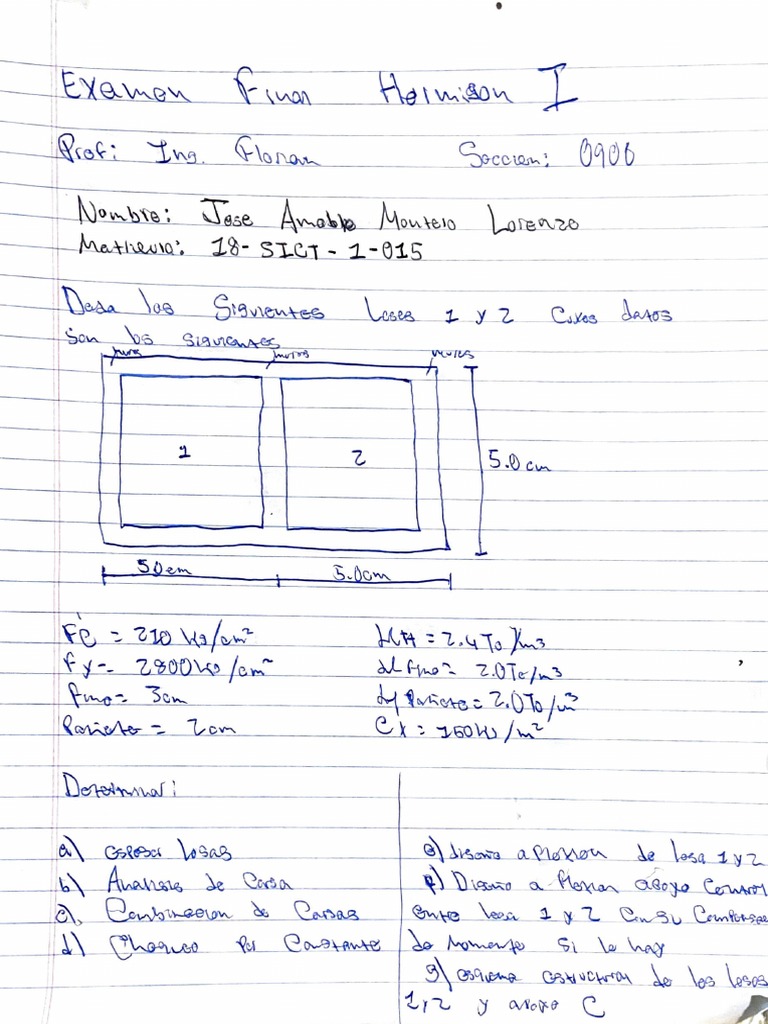 Examen Final Hormigon I
Prof: Ing. Florian Seccion: 0906
Nombre: Jose Amable Montero Lorenzo
Matricula: 18-SICT-1-015
Dada las Siguientes Loses 1 y 2 Cuyos datos
son los siguientes
muros muros muros
1 2
5.0cm
50cm 5.0cm
F'c = 210 kg/cm²
Fy = 2800 kg/cm²
fino = 3cm
Pañete = 2cm
= 2.4 To/m3
fino = 2.0 To/m3
Pañete = 2.0 To/m3
= 160 kg/m²
Determinar:
a) espesor losas
b) Analisis de Carga
c) Combinacion de Cargas
d) Chequeo por Constante
e) diseño a flexion de losa 1 y 2
f) Diseño a flexion apoyo Central
entre losa 1 y 2 Con su
de Momento si lo hay
g) esquema estructural de las losas
1 y 2 y apoyo C